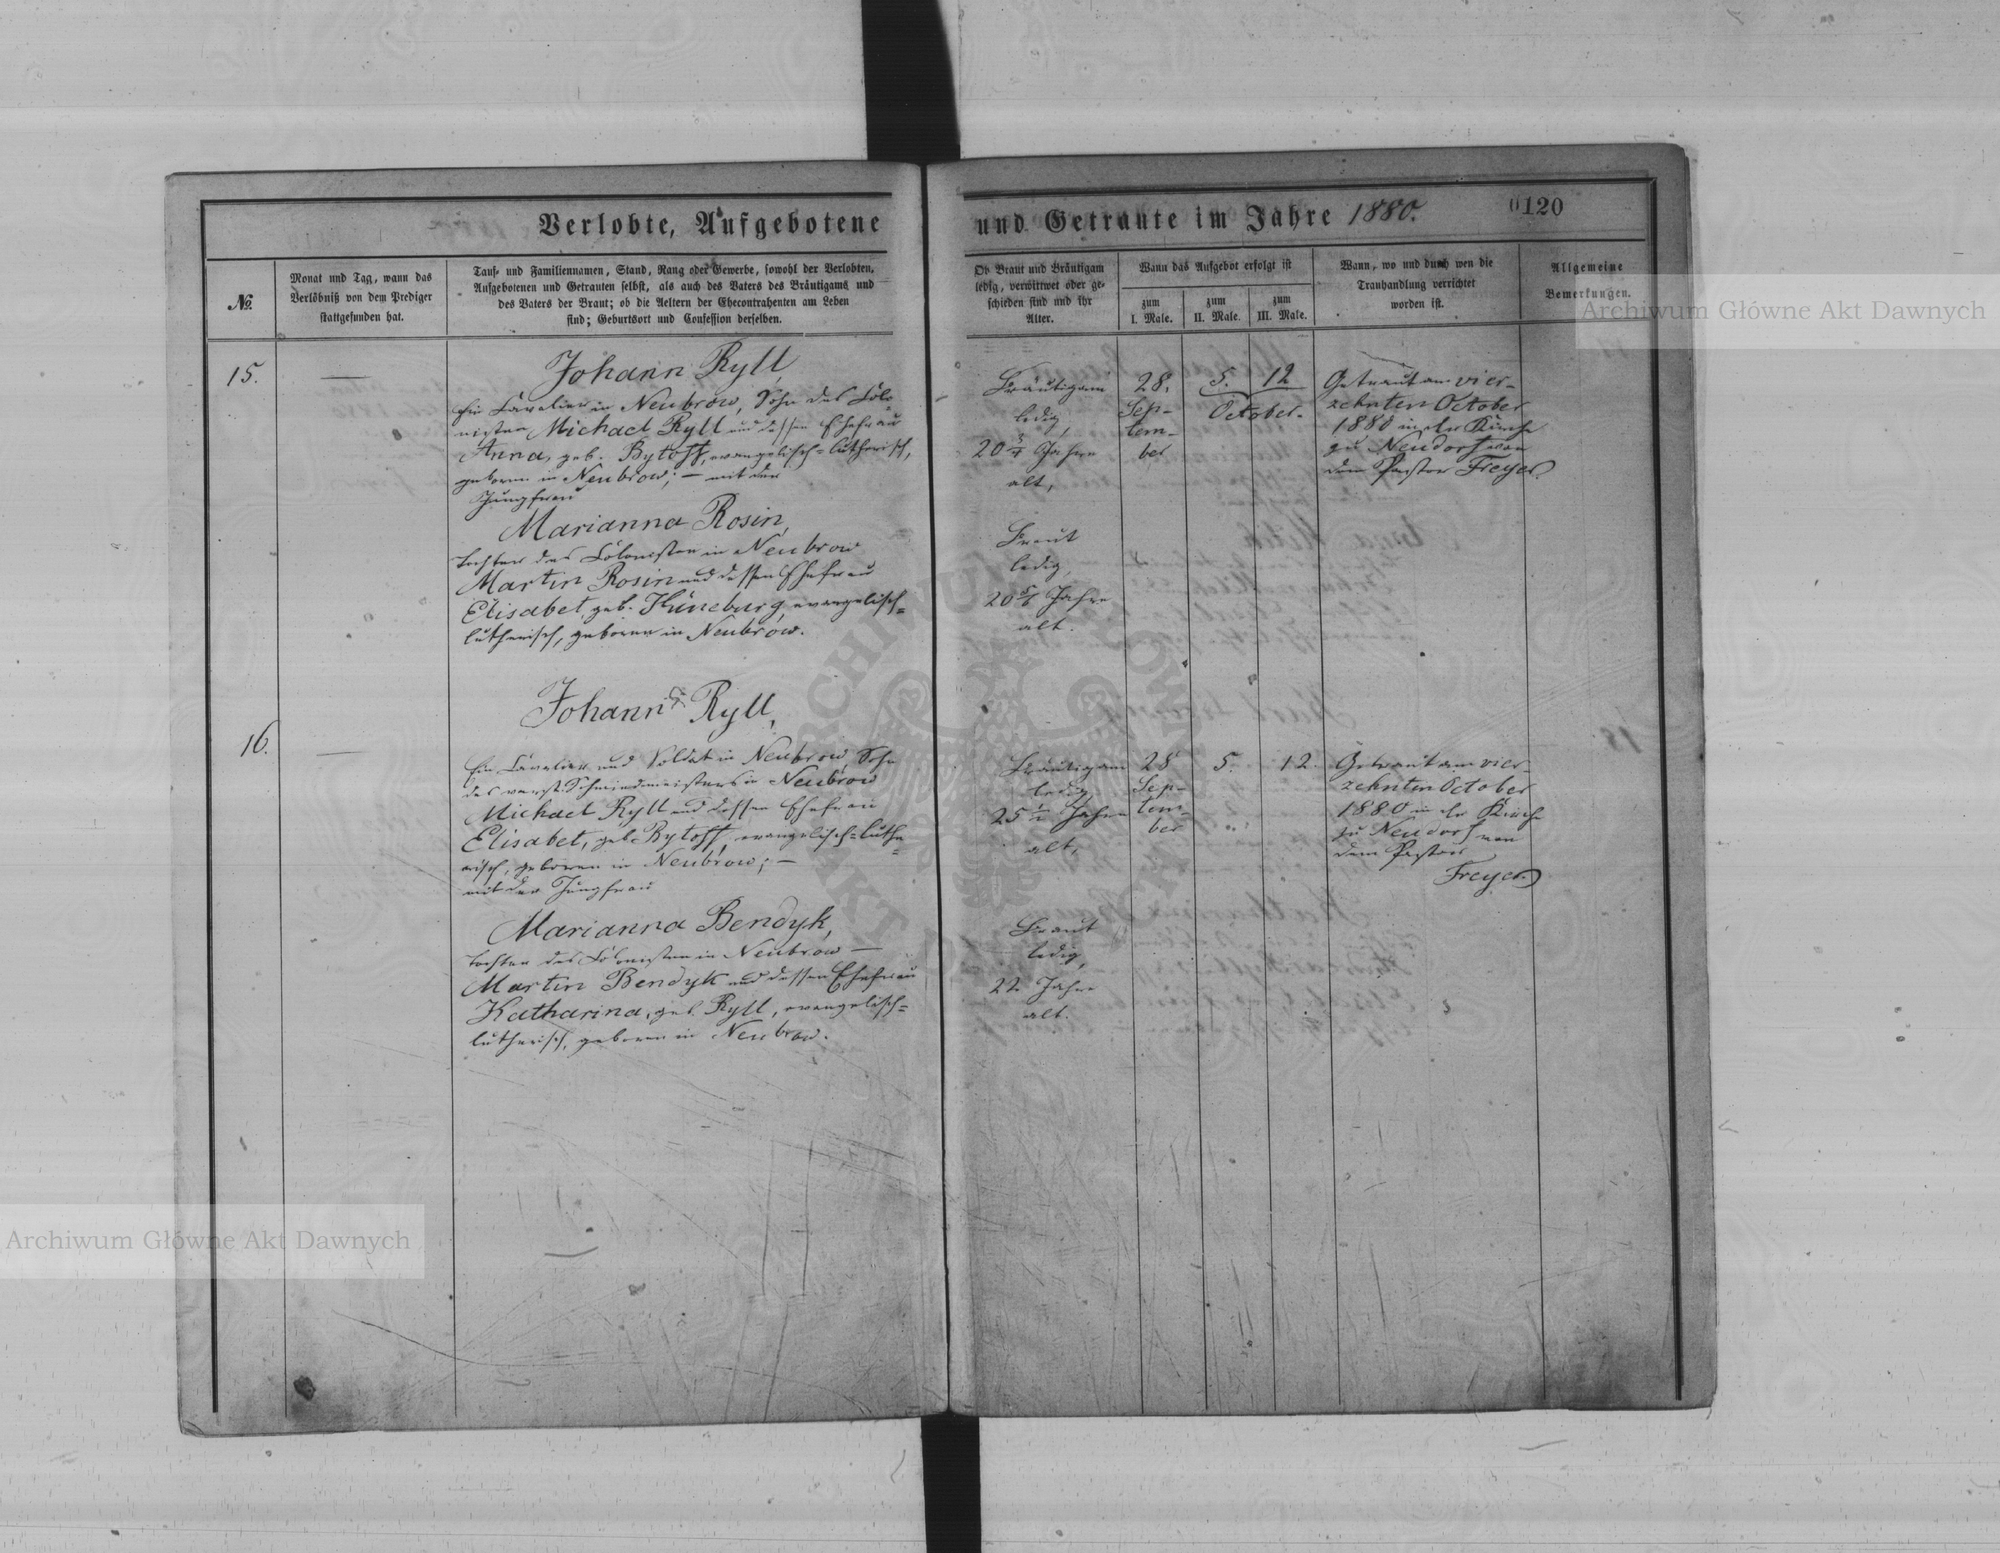 Verlobte, Aufgebotene und Getraute im Jahre 1880.
0120
№.
Monat und Tag, wann das
Verlöbniß von dem Prediger
stattgefunden hat.
Tauf- und Familiennamen, Stand, Rang oder Gewerbe, sowohl der Verlobten,
Aufgebotenen und Getrauten selbst, als auch des Vaters des Bräutigams und
des Vaters der Braut; ob die Aeltern der Ehecontrahenten am Leben
sind; Geburtsort und Confession derselben.
Ob Braut und Bräutigam
ledig, verwittwet oder ge-
schieden sind und ihr
Alter.
Wann das Aufgebot erfolgt ist
zum
I. Male.
zum
II. Male.
zum
III. Male.
Wann, wo und durch wen die
Trauhandlung verrichtet
worden ist.
Allgemeine
Bemerkungen.
15.
—
Johann Ryll,
Ein Cavalier in Neubrow, Sohn des Colo-
nisten Michael Ryll und dessen Ehefrau
Anna, geb. Bytoff, evangelisch-lutherisch,
geboren in Neubrow; — mit der
Jungfrau
Marianna Rosin,
Tochter des Colonisten in Neubrow
Martin Rosin und dessen Ehefrau
Elisabet geb. Küneburg, evangelisch-
lutherisch, geboren in Neubrow.
Bräutigam
ledig,
20 3/4 Jahre
alt,
Braut
ledig,
20 5/6 Jahre
alt.
28.
Sep-
tem-
ber
5. 12
October.
Getraut am vier-
zehnten October
1880 in der Kirche
zu Neudorf von
dem Pastor Freyer.
16.
—
Johann Ryll,
Ein Cavalier und Soldat in Neubrow, Sohn
des verst. Schmiedmeisters in Neubrow
Michael Ryll und dessen Ehefrau
Elisabet, geb. Bytoff, evangelisch-luthe-
risch, geboren in Neubrow; —
mit der Jungfrau
Marianna Bendyk,
Tochter des Colonisten in Neubrow —
Martin Bendyk und dessen Ehefrau
Katharina, geb. Ryll, evangelisch-
lutherisch, geboren in Neubrow.
Bräutigam
ledig,
25 1/2 Jahre
alt,
Braut
ledig,
22 Jahre
alt.
28
Sep-
tem-
ber
5.
12.
Getraut am vier-
zehnten October
1880 in der Kirche
zu Neudorf von
dem Pastor
Freyer.
Archiwum Główne Akt Dawnych
Archiwum Główne Akt Dawnych
ARCHIWUM GŁÓWNE AKT DAWNYCH